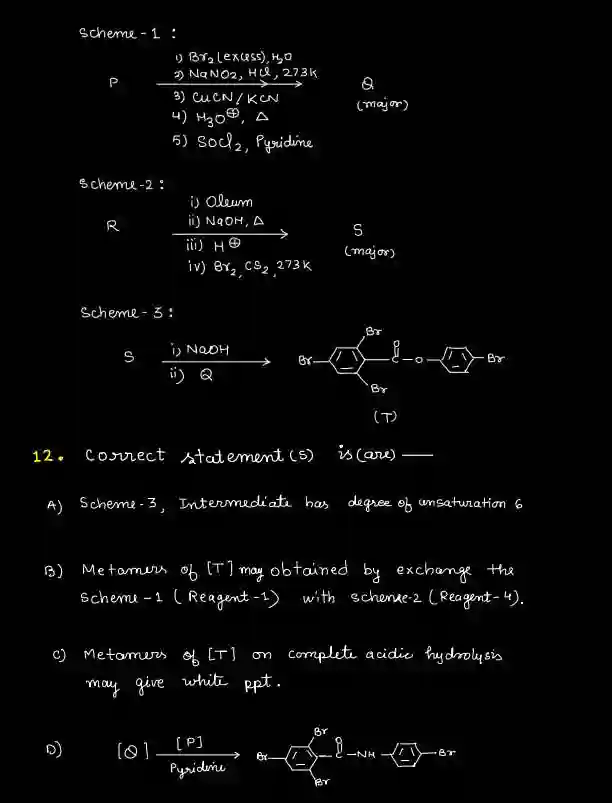 Scheme-1 :
P
1) Br2 (excess), H2O
2) NaNO2, HCl, 273K
3) CuCN/KCN
4) H3O⊕, Δ
5) SOCl2, Pyridine
Q
(major)
Scheme-2 :
R
i) Oleum
ii) NaOH, Δ
iii) H⊕
iv) Br2, CS2, 273K
S
(major)
Scheme-3 :
S
i) NaOH
ii) Q
Br
Br
O
C-O
Br
Br
(T)
12. Correct statement(s) is(are) —
A) Scheme-3, Intermediate has degree of unsaturation 6
B) Metamers of [T] may obtained by exchange the
scheme-1 (Reagent-1) with scheme-2 (Reagent-4).
C) Metamers of [T] on complete acidic hydrolysis
may give white ppt.
D) [Q]
[P]
Pyridine
Br
Br
O
C-NH
Br
Br